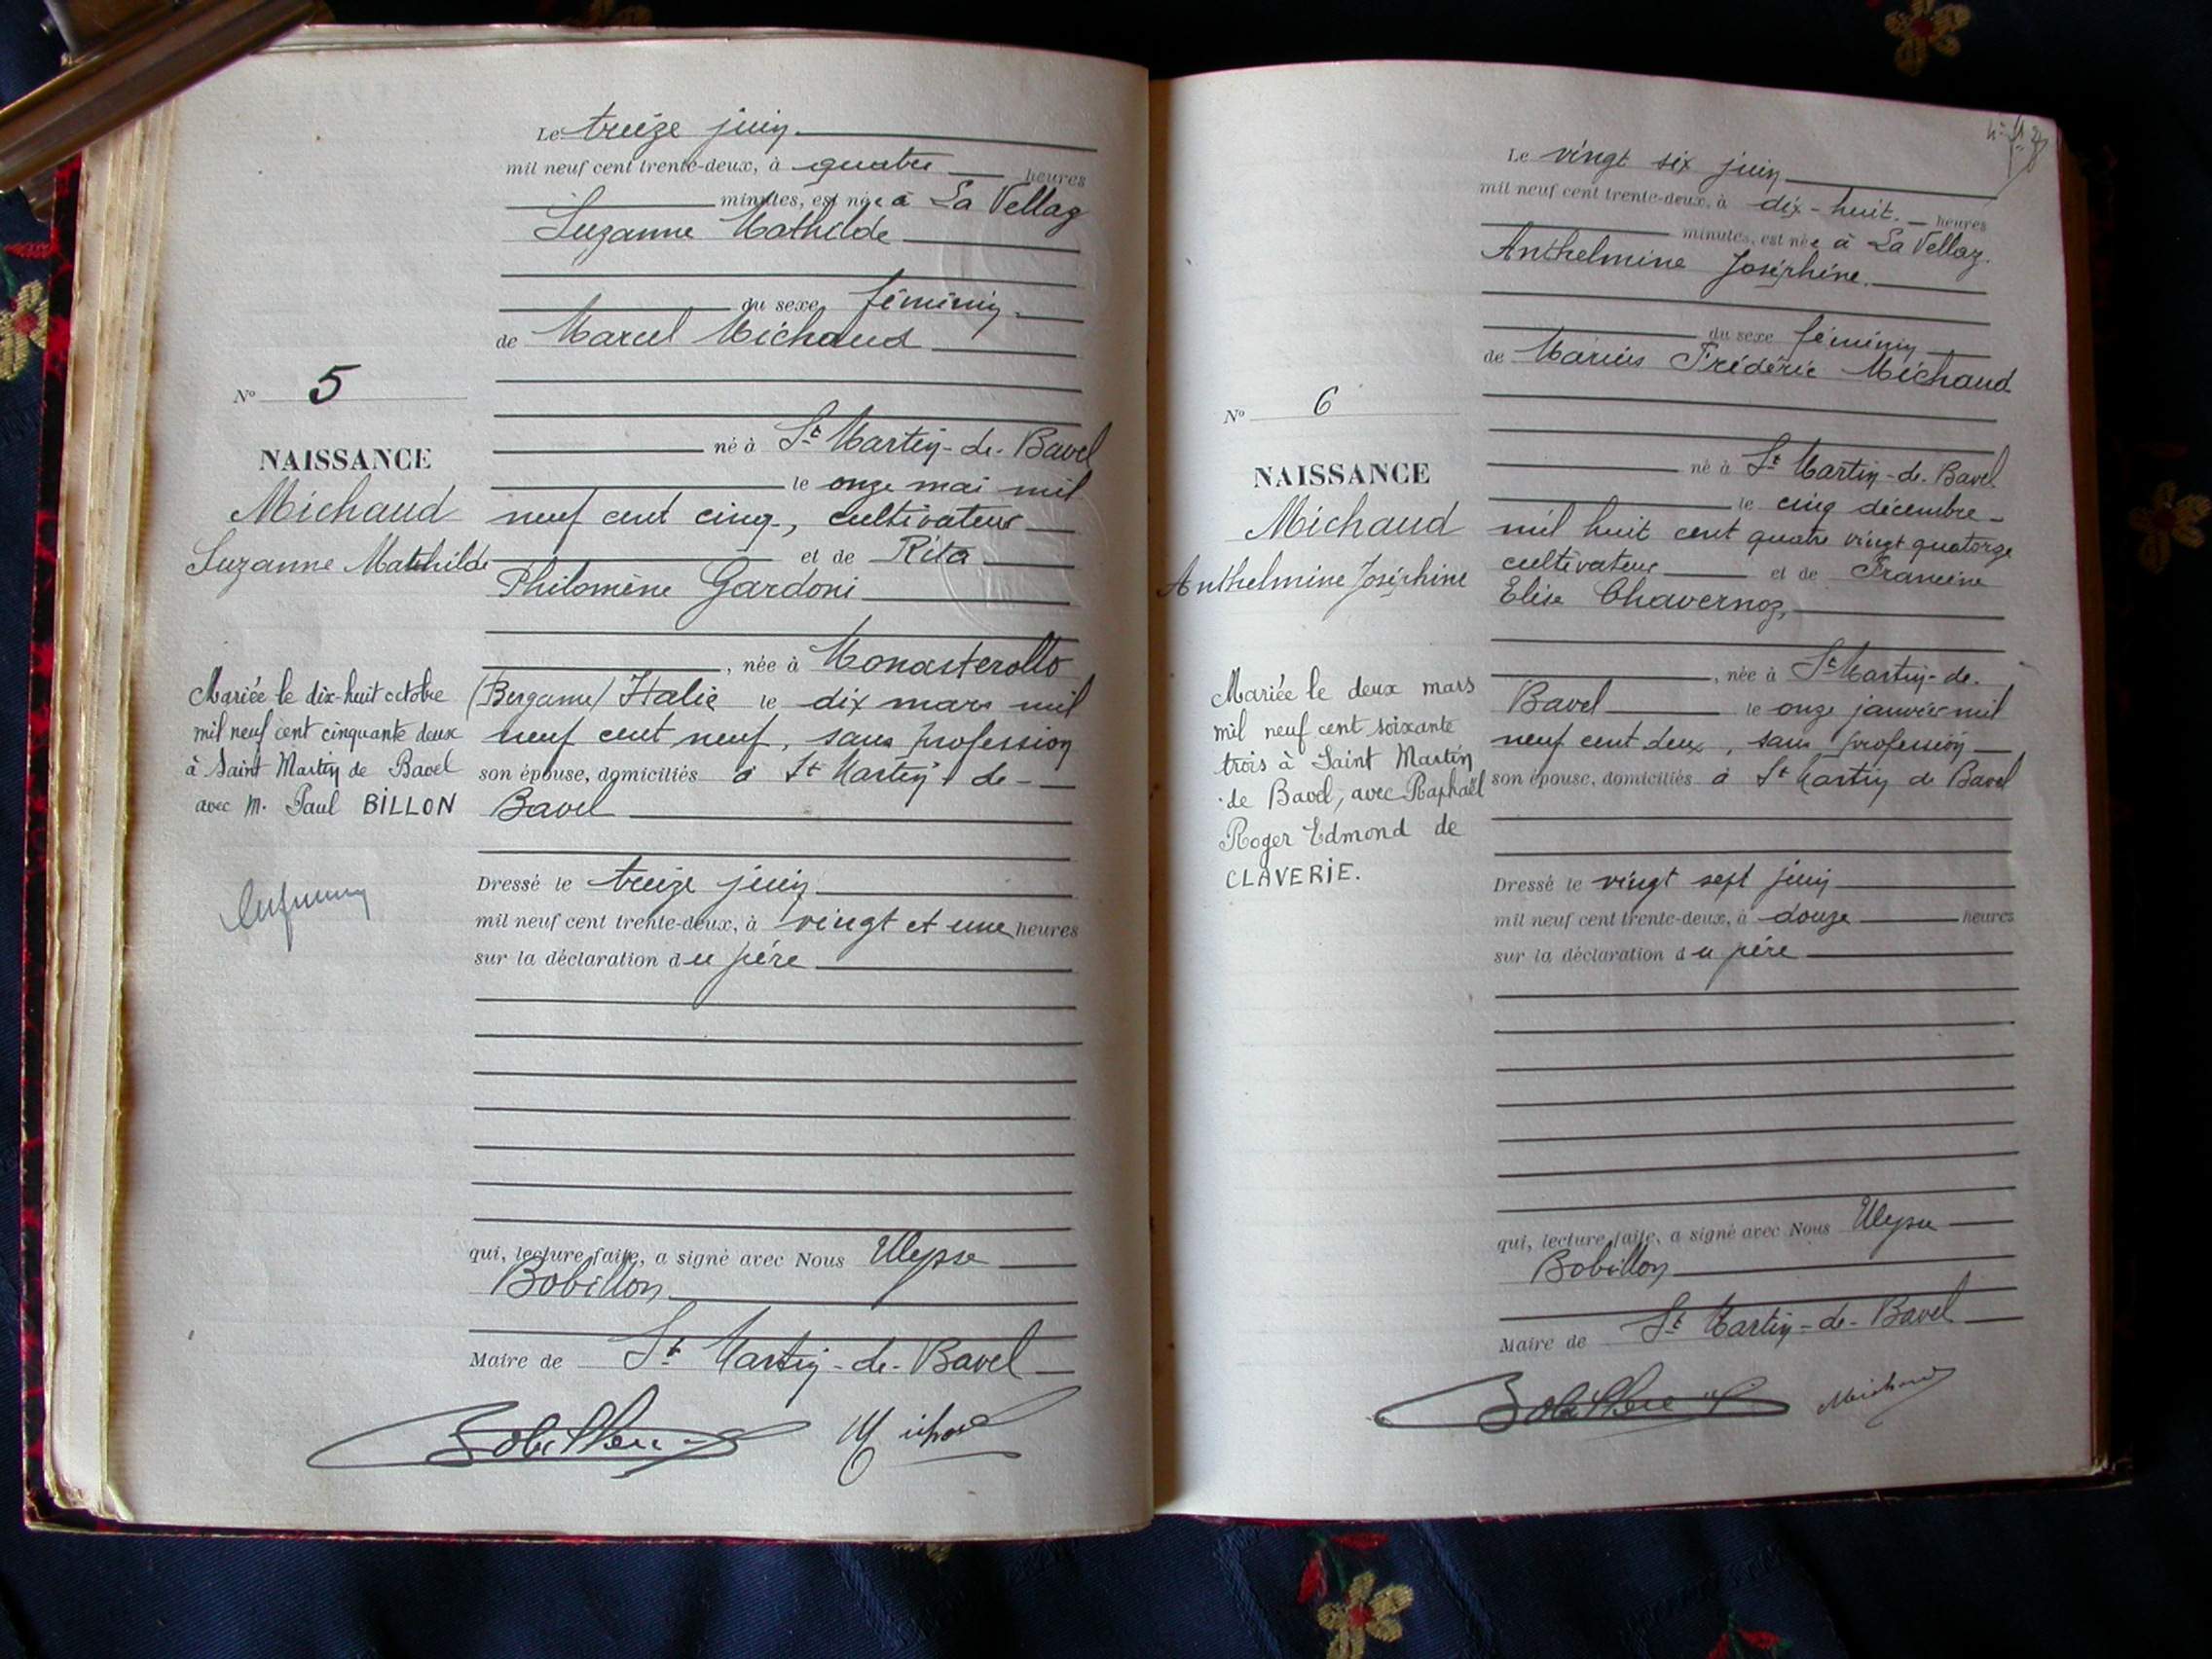 Le treize juin
mil neuf cent trente-deux, à quatre heures
minutes, est née à La Vellaz
Suzanne Mathilde
du sexe féminin
de Marcel Michaud
né à St Martin-de-Bavel
le onze mai mil
neuf cent cinq, cultivateur
et de Rita
Philomène Gardoni
, née à Monasterollo
(Bergame) Italie le dix mars mil
neuf cent neuf, sans profession
son épouse, domiciliés à St Martin-de-
Bavel
Dressé le treize juin
mil neuf cent trente-deux, à vingt et une heures
sur la déclaration du père
qui, lecture faite, a signé avec Nous Ulysse
Bobillon
Maire de St Martin-de-Bavel
Michaud
N° 5
NAISSANCE
Michaud
Suzanne Mathilde
Mariée le dix-huit octobre
mil neuf cent cinquante deux
à Saint Martin de Bavel
avec M. Paul BILLON
Le vingt six juin
mil neuf cent trente-deux, à dix-huit heures
minutes, est née à La Vellaz.
Anthelmine Joséphine.
du sexe féminin
de Marius Frédéric Michaud
né à St Martin-de-Bavel
le cinq décembre
mil huit cent quatre vingt quatorze
cultivateur et de Francine
Elise Chavernoz,
, née à St Martin-de-
Bavel le onze janvier mil
neuf cent deux, sans profession
son épouse, domiciliés à St Martin de Bavel
Dressé le vingt sept juin
mil neuf cent trente-deux, à douze heures
sur la déclaration du père
qui, lecture faite, a signé avec Nous Ulysse
Bobillon
Maire de St Martin-de-Bavel
Michaud
N° 6
NAISSANCE
Michaud
Anthelmine Joséphine
Mariée le deux mars
mil neuf cent soixante
trois à Saint Martin
de Bavel, avec Raphaël
Roger Edmond de
CLAVERIE.